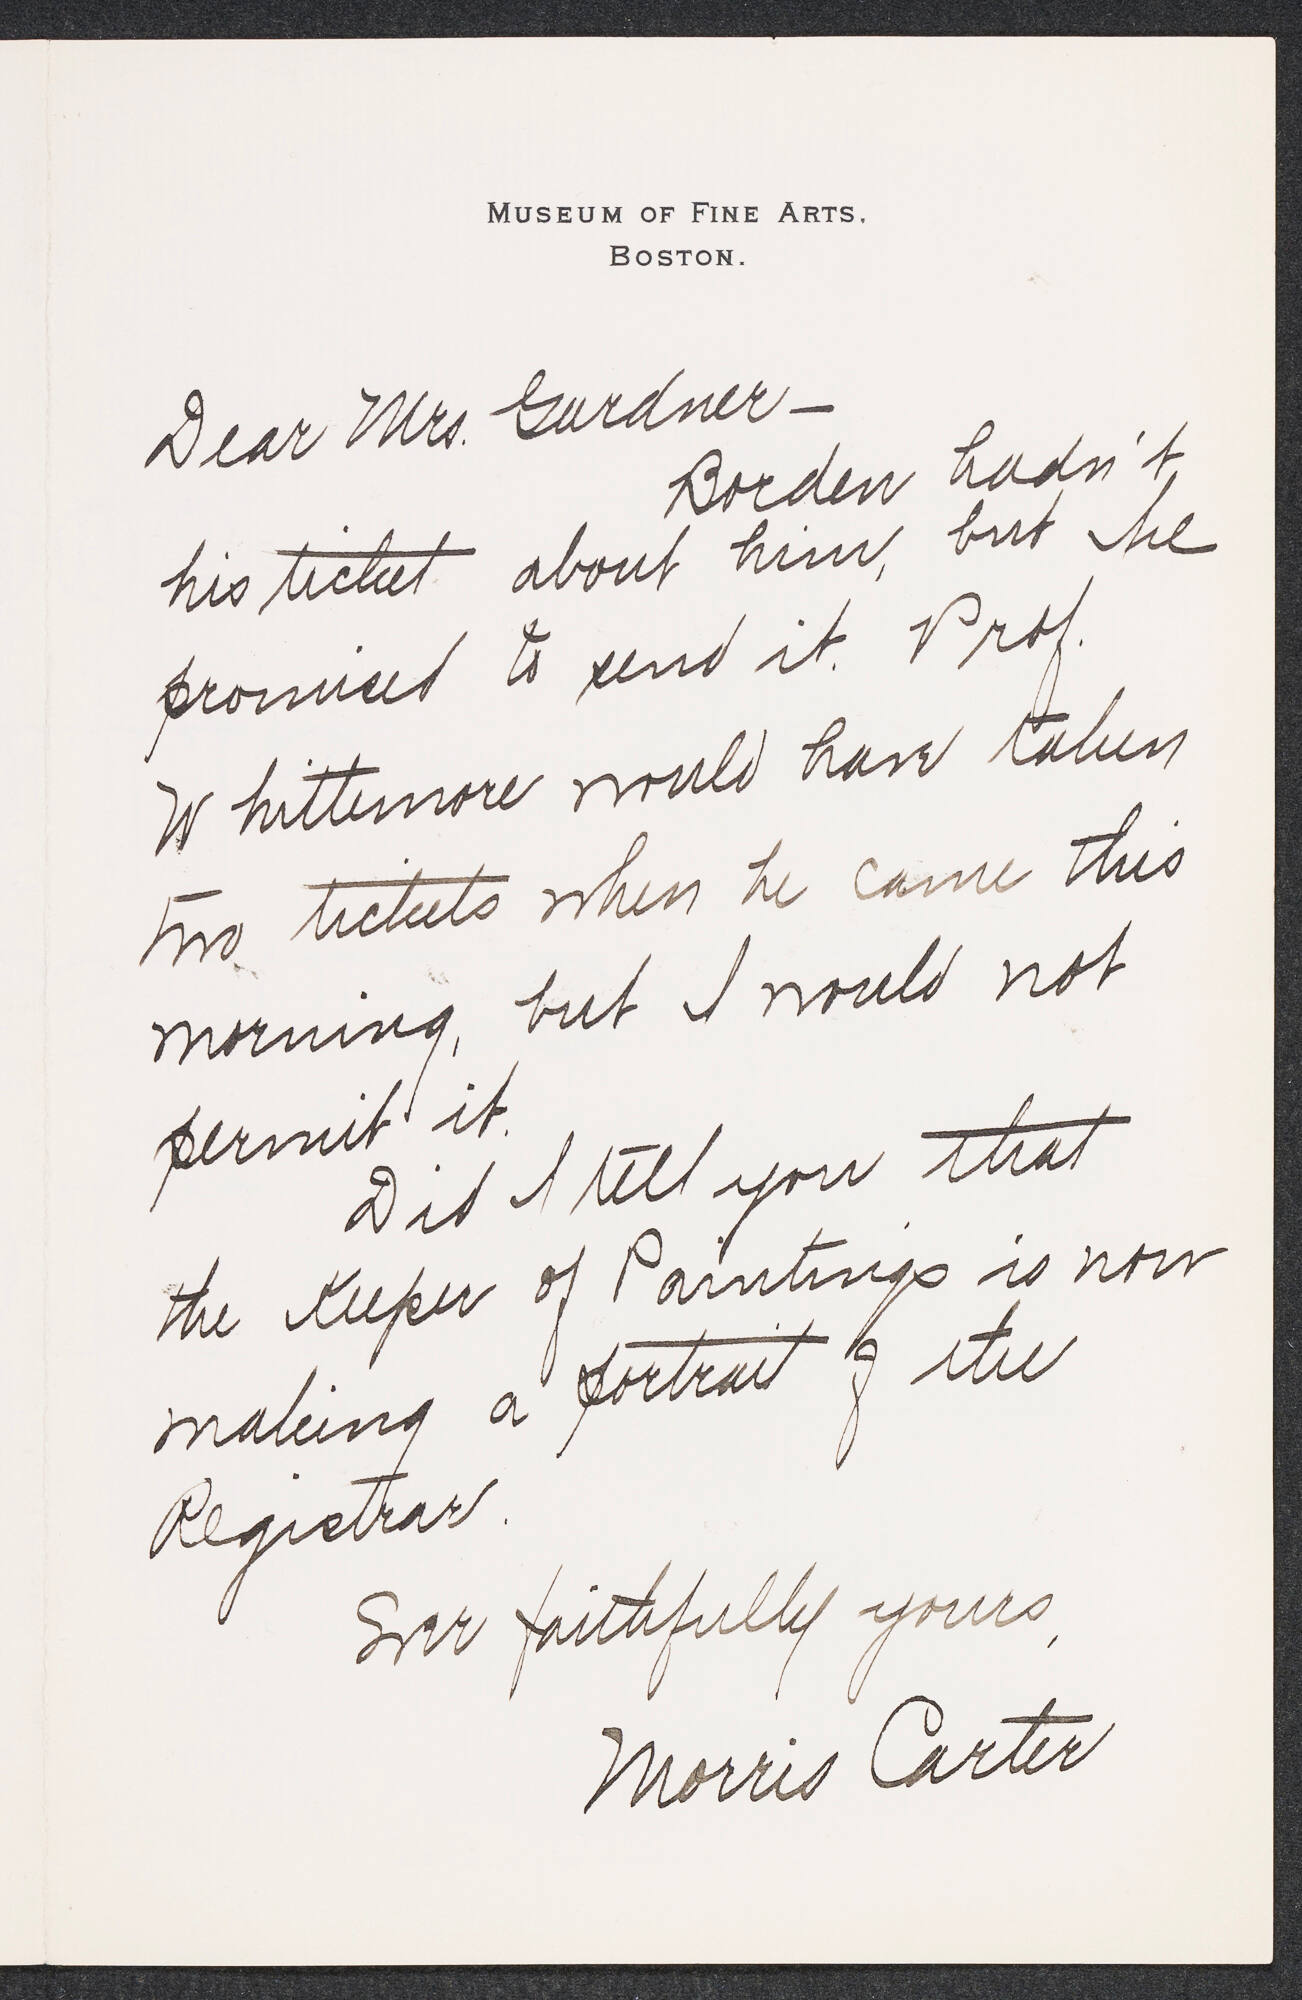 MUSEUM OF FINE ARTS,
BOSTON.
Dear Mrs. Gardner –
Borden hadn't
his ticket about him, but he
promised to send it. Prof.
Whittemore would have taken
two tickets when he came this
morning, but I would not
permit it.
Did I tell you that
the Keeper of Paintings is now
making a portrait of the
Registrar.
Ever faithfully yours,
Morris Carter